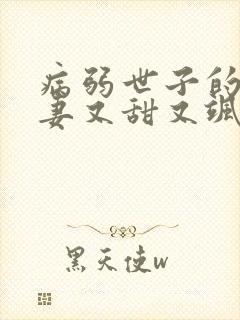 病弱世子的
妻又甜又飒
黑天使w